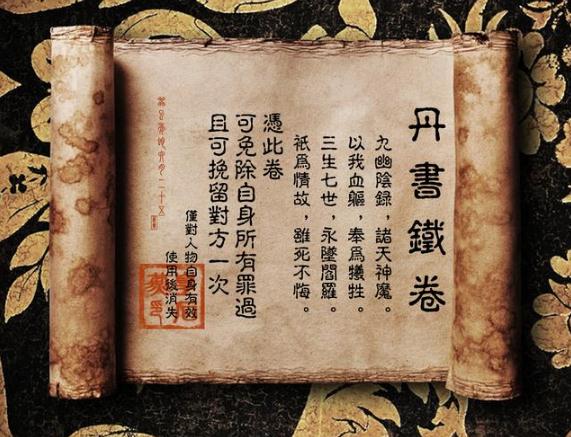 丹書鐵卷
九幽陰録，諸天神魔。
以我血軀，奉爲犧牲。
三生七世，永墜閻羅。
衹爲情故，雖死不悔。
憑此卷
可免除自身所有罪過
且可挽留對方一次
僅對人物自身有效
使用後消失